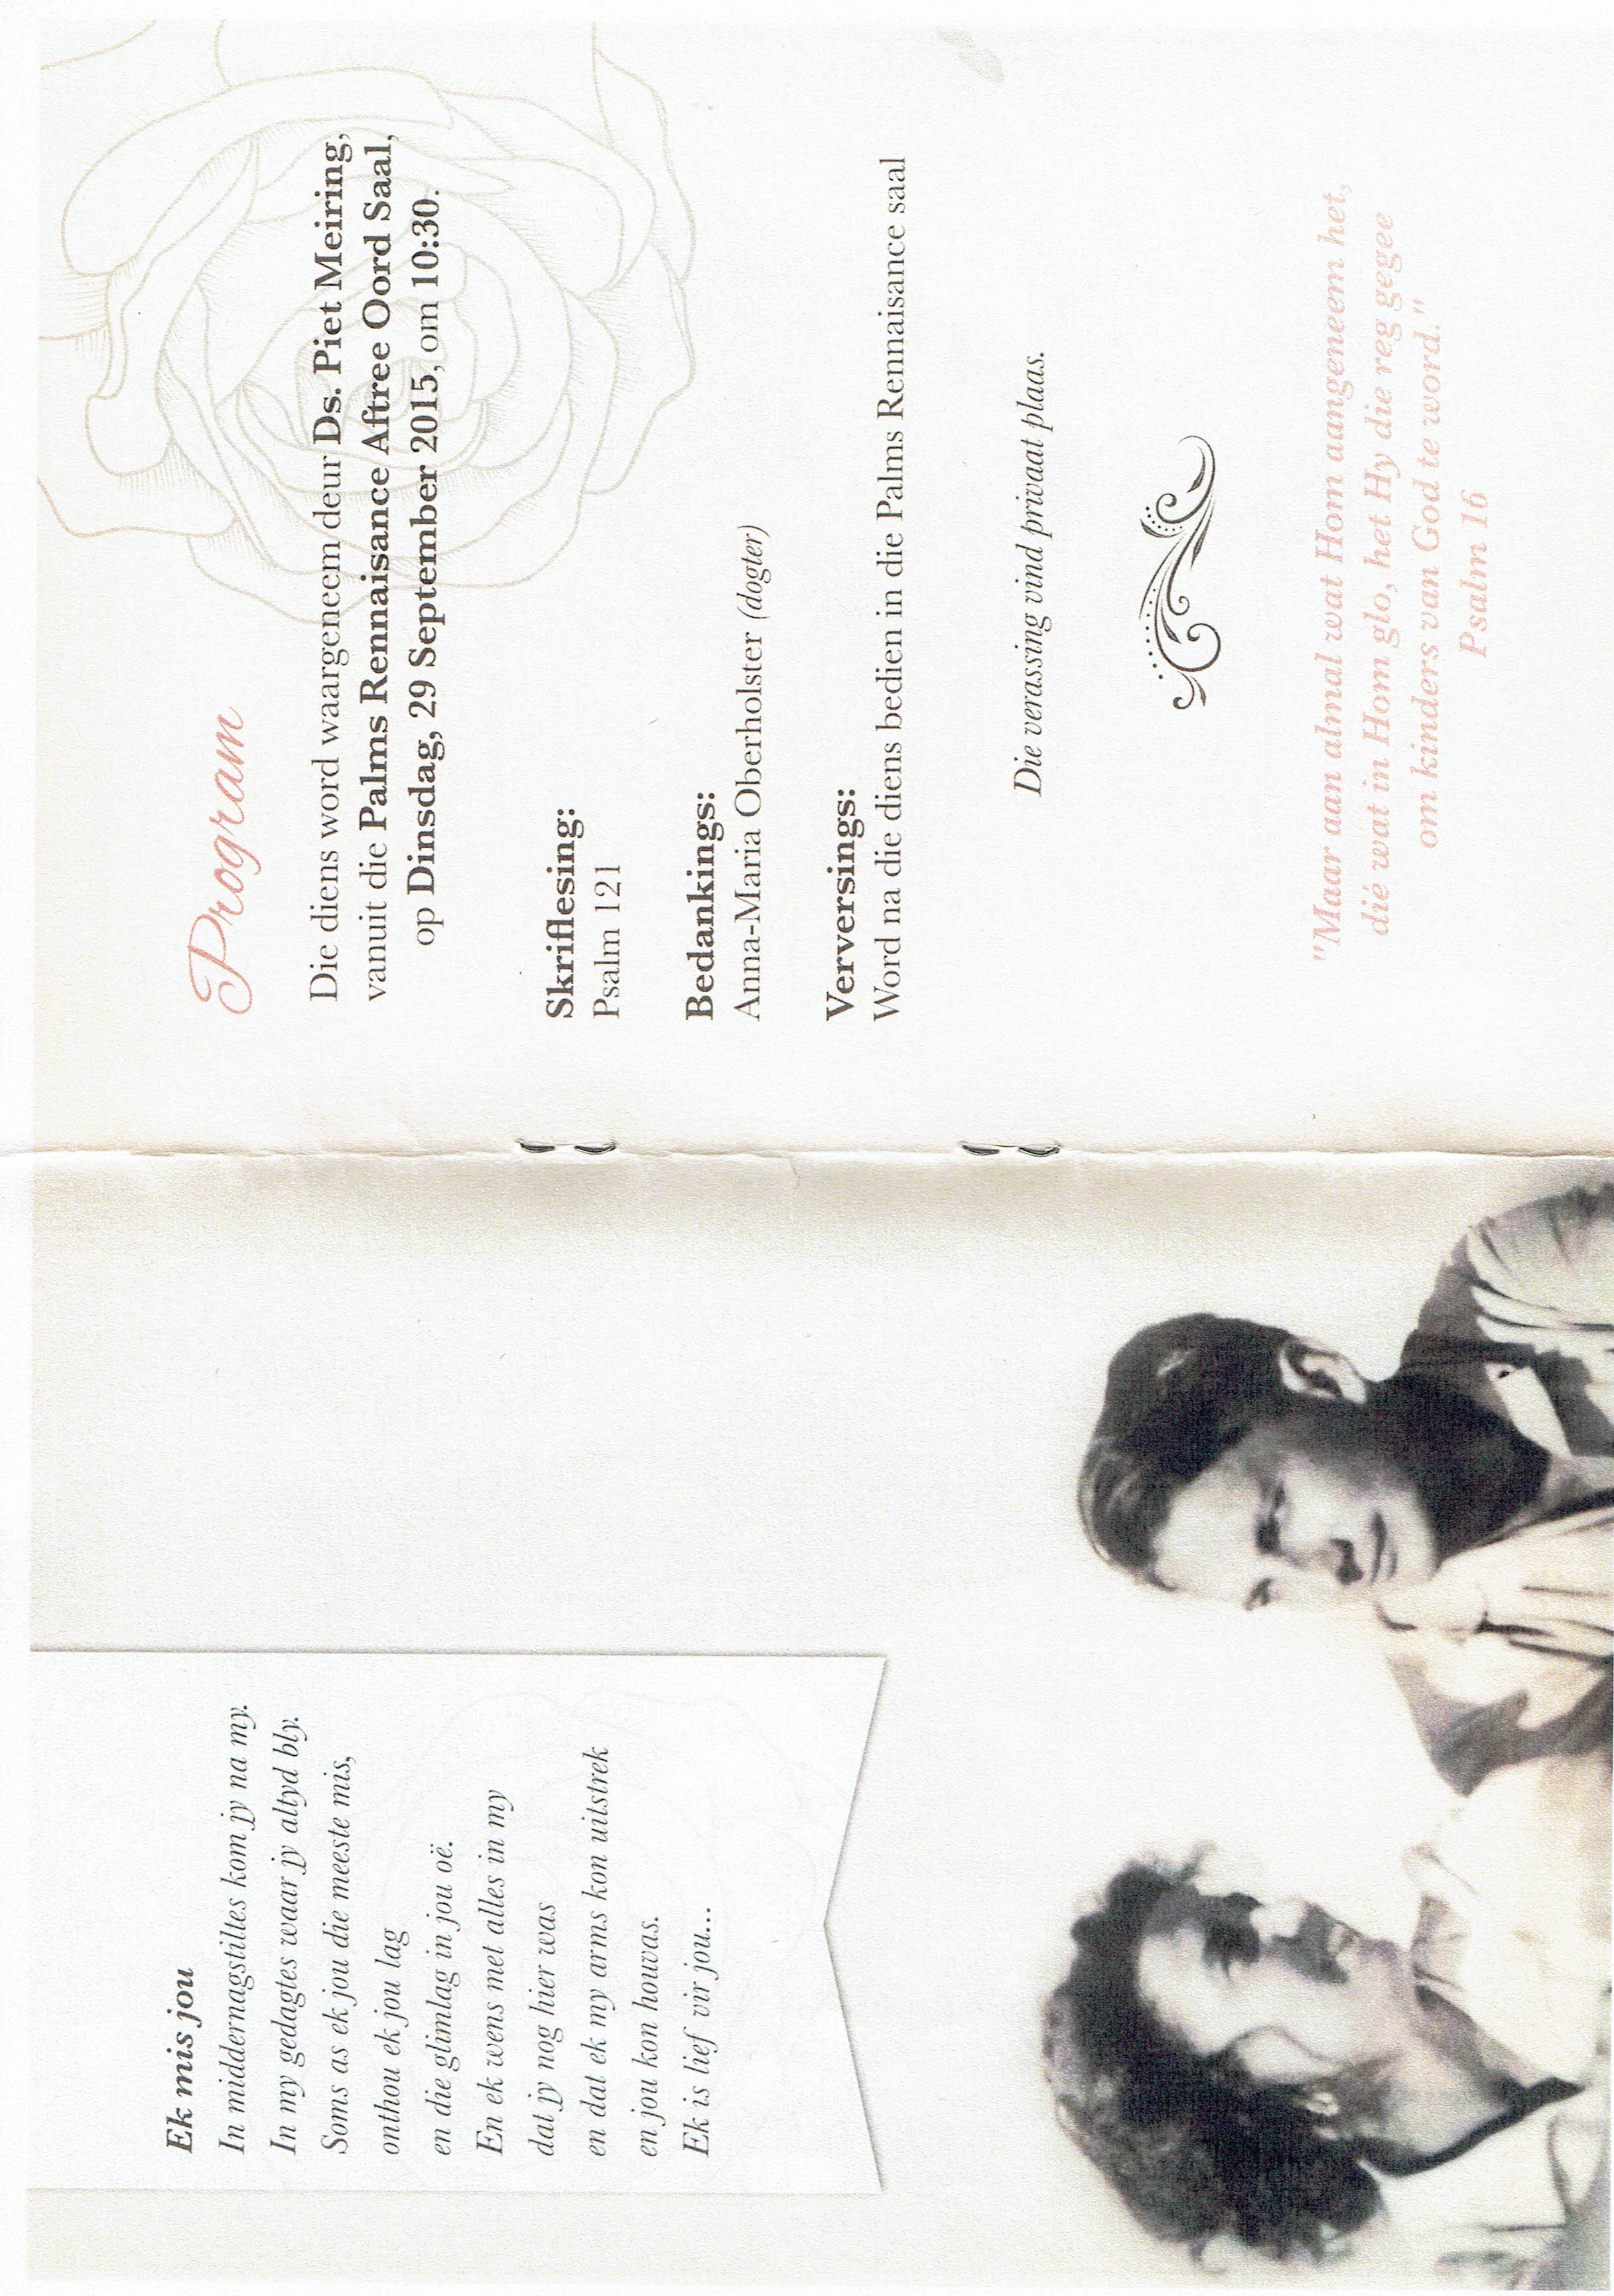 Ek mis jou
In middernagstiltes kom jy na my.
In my gedagtes waar jy altyd bly.
Soms as ek jou die meeste mis,
onthou ek jou lag
en die glimlag in jou oë.
En ek wens met alles in my
dat jy nog hier was
en dat ek my arms kon uitstrek
en jou kon houvas.
Ek is lief vir jou...
Program
Die diens word waargeneem deur Ds. Piet Meiring,
vanuit die Palms Rennaisance Aftree Oord Saal,
op Dinsdag, 29 September 2015, om 10:30.
Skriflesing:
Psalm 121
Bedankings:
Anna-Maria Oberholster (dogter)
Verversings:
Word na die diens bedien in die Palms Rennaisance saal
Die verassing vind privaat plaas.
"Maar aan almal wat Hom aangeneem het,
dié wat in Hom glo, het Hy die reg gegee
om kinders van God te word."
Psalm 16